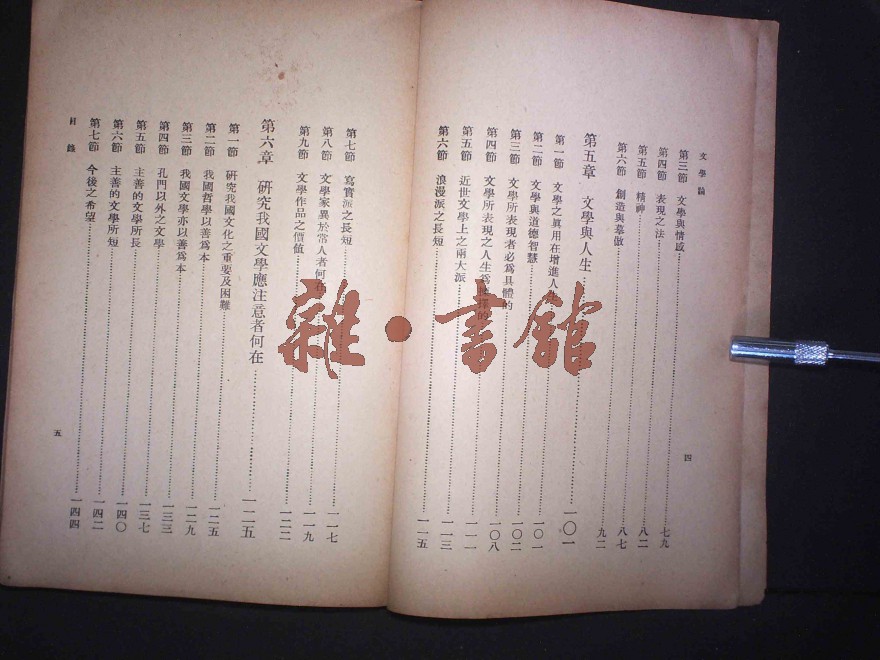 文學論
第三節 文學與情感 七九
第四節 表現之法 八二
第五節 精神 八七
第六節 創造與摹倣 九二
第五章 文學與人生 一〇一
第一節 文學之眞用在增進人生 一〇一
第二節 文學與道德智慧 一〇二
第三節 文學所表現者必爲具體的 一〇八
第四節 文學所表現之人生爲 的 一一一
第五節 近世文學上之兩大派 一一三
第六節 浪漫派之長短 一一五
四
第七節 寫實派之長短 一一七
第八節 文學家異於常人者何在 一一九
第九節 文學作品之價値 一二二
第六章 硏究我國文學應注意者何在 一二五
第一節 硏究我國文化之重要及困難 一二五
第二節 我國哲學以善爲本 一二九
第三節 我國文學亦以善爲本 一三三
第四節 孔門以外之文學 一三七
第五節 主善的文學所長 一四〇
第六節 主善的文學所短 一四二
第七節 今後之希望 一四四
目錄
五
雜·書館